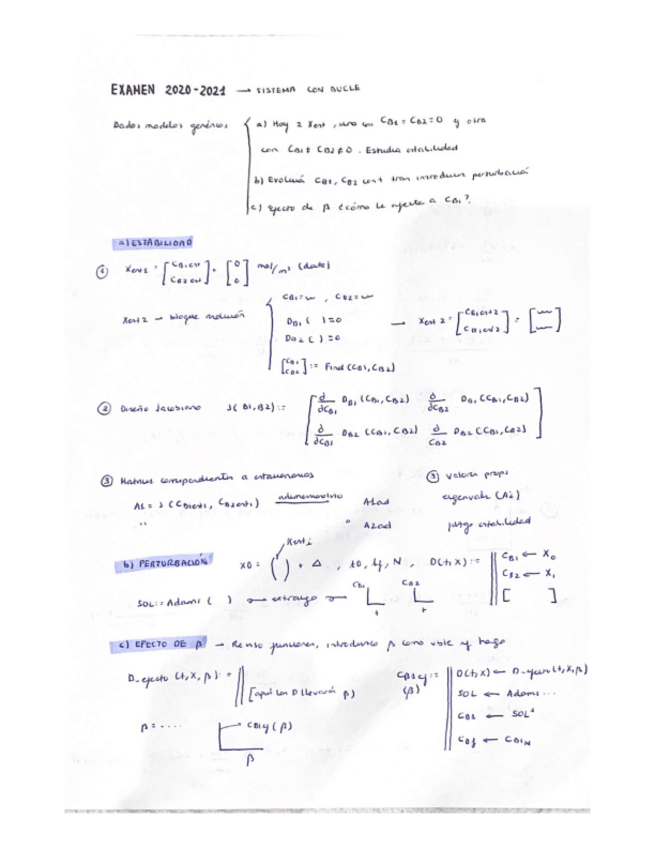 EXAMEN 2020-2021 → SISTEMA CON BUCLE
Dados modelos genéricos
a) Hay 2 Xest, uno con CB1 = CB2 = 0 y otra
con CB1 ≠ CB2 ≠ 0. Estudia estabilidad
b) Evolución CB1, CB2 con t tras introducir perturbación
c) Efecto de β ¿cómo le afecta a CB1?
a) ESTABILIDAD
① Xest1 = [CB1est CB2est] = [0 0] mol/m³ (dato)
Xest2 → bloque resolución
CB1 = , CB2 =
DB1 ( ) = 0
DB2 ( ) = 0
[CB1 CB2] := Find (CB1, CB2)
→ Xest2 = [CB1est2 CB2est2] = [ ]
② Diseño Jacobiano J(B1,B2) :=
d/dCB1 DB1 (CB1, CB2) d/dCB2 DB1 (CB1, CB2)
d/dCB1 DB2 (CB1, CB2) d/dCB2 DB2 (CB1, CB2)
③ Matrices correspondientes a estacionarios
A1 = J (CB1est1, CB2est1) A1ad
" " A2ad
③ Valores props
eigenvals (A2)
juzgo estabilidad
b) PERTURBACIÓN
Xest
X0 = ( ) + Δ , t0, tf, N , D(t,X) :=
CB1 ← X0
CB2 ← X1
[ ]
SOL := Adams ( ) → extraigo →
CB1 t
CB2 t
c) EFECTO DE β → Reviso funciones, introduzco β como vble y hago
D_efecto (t, X, β) :=
[aquí las D llevarán β]
CB1f (β) :=
D(t,X) ← D_efecto (t, X, β)
SOL ← Adams ...
CB1 ← SOL
CBf ← CB1N
β = ....
CB1f (β)
β